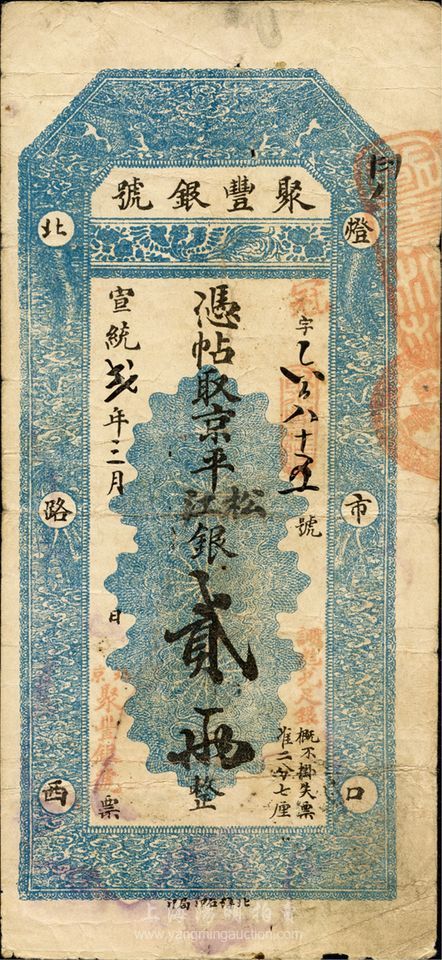 聚豐銀號
燈市口
北路西
冠字 八十五號
憑帖取京平松江銀貳兩整
宣統貳年三月 日
北京聚豐銀號票
概不掛失票
准二分七厘
上海陽明拍賣
www.yangmingauction.com